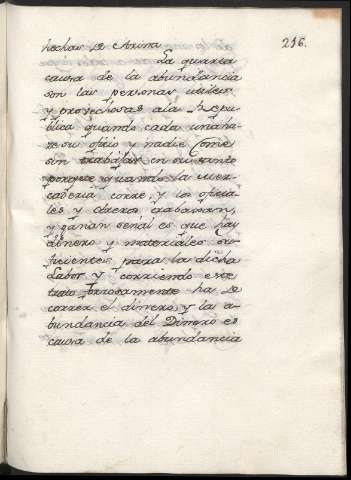 216.
hechas de Arina
La quarta
causa de la abundancia
son las personas utiles
y provechosas a la Repu
blica quando cada una ha
ze su ofizio y nadie Come
sin trabajar en su
porque quando la mer
caderia corre, y los oficia
les y obreros trabajan,
y ganan señal es que hay
dinero y materiales su
ficientes para la dicha
Labor y corriendo este
trato forzosamente ha de
correr el dinero, y la a-
bundancia del Dinero es
causa de la abundancia